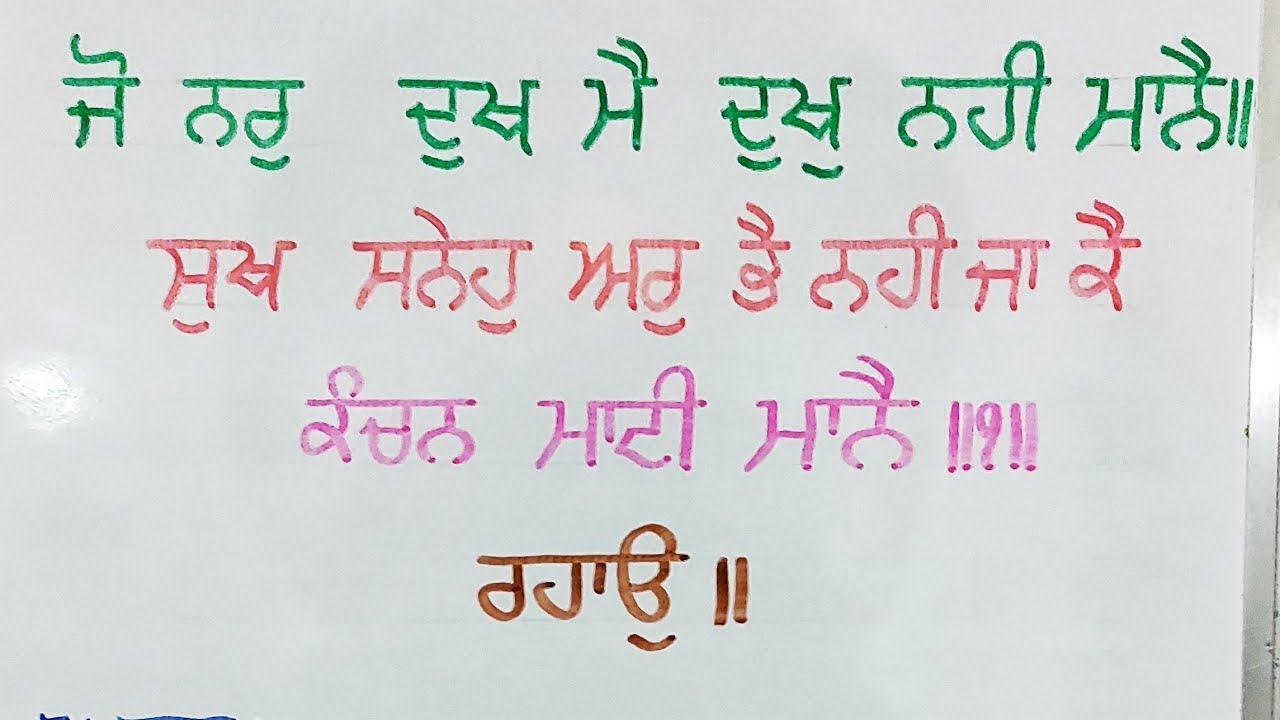 ਜੋ ਨਰੁ ਦੁਖ ਮੈ ਦੁਖੁ ਨਹੀ ਮਾਨੈ॥
ਸੁਖ ਸਨੇਹੁ ਅਰੁ ਭੈ ਨਹੀ ਜਾ ਕੈ
ਕੰਚਨ ਮਾਟੀ ਮਾਨੈ ॥੧॥
ਰਹਾਉ ॥